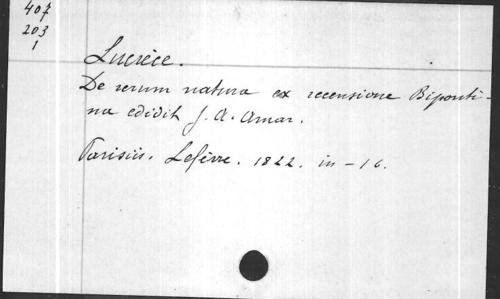 407
203
1
Lucrèce.
De rerum natura ex recensione Biponti-
na edidit J. A. Amar.
Parisiis. Lefèvre. 1822. in-16.